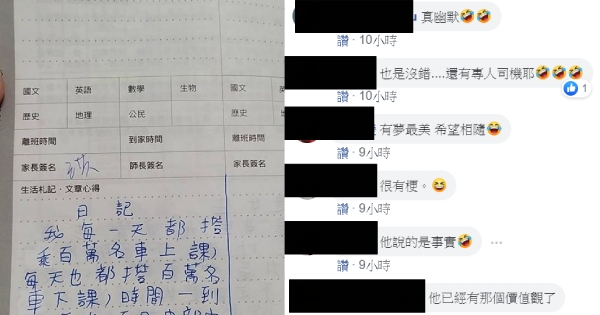 國文 英語 數學 生物 國文
歷史 地理 公民 歷史
離班時間 到家時間 離班時間
家長簽名 師長簽名 家長簽名
生活札記・文章心得
日 記
我每一天都搭
乘百萬名車上課,
每天也都搭百萬名
車下課,時間一到
真幽默🤣🤣
讚 · 10小時
也是沒錯....還有專人司機耶🤣🤣🤣
1
讚 · 10小時
有夢最美 希望相隨😅
讚 · 9小時
很有梗。😆
讚 · 9小時
他說的是事實🤣
讚 · 9小時
他已經有那個價值觀了